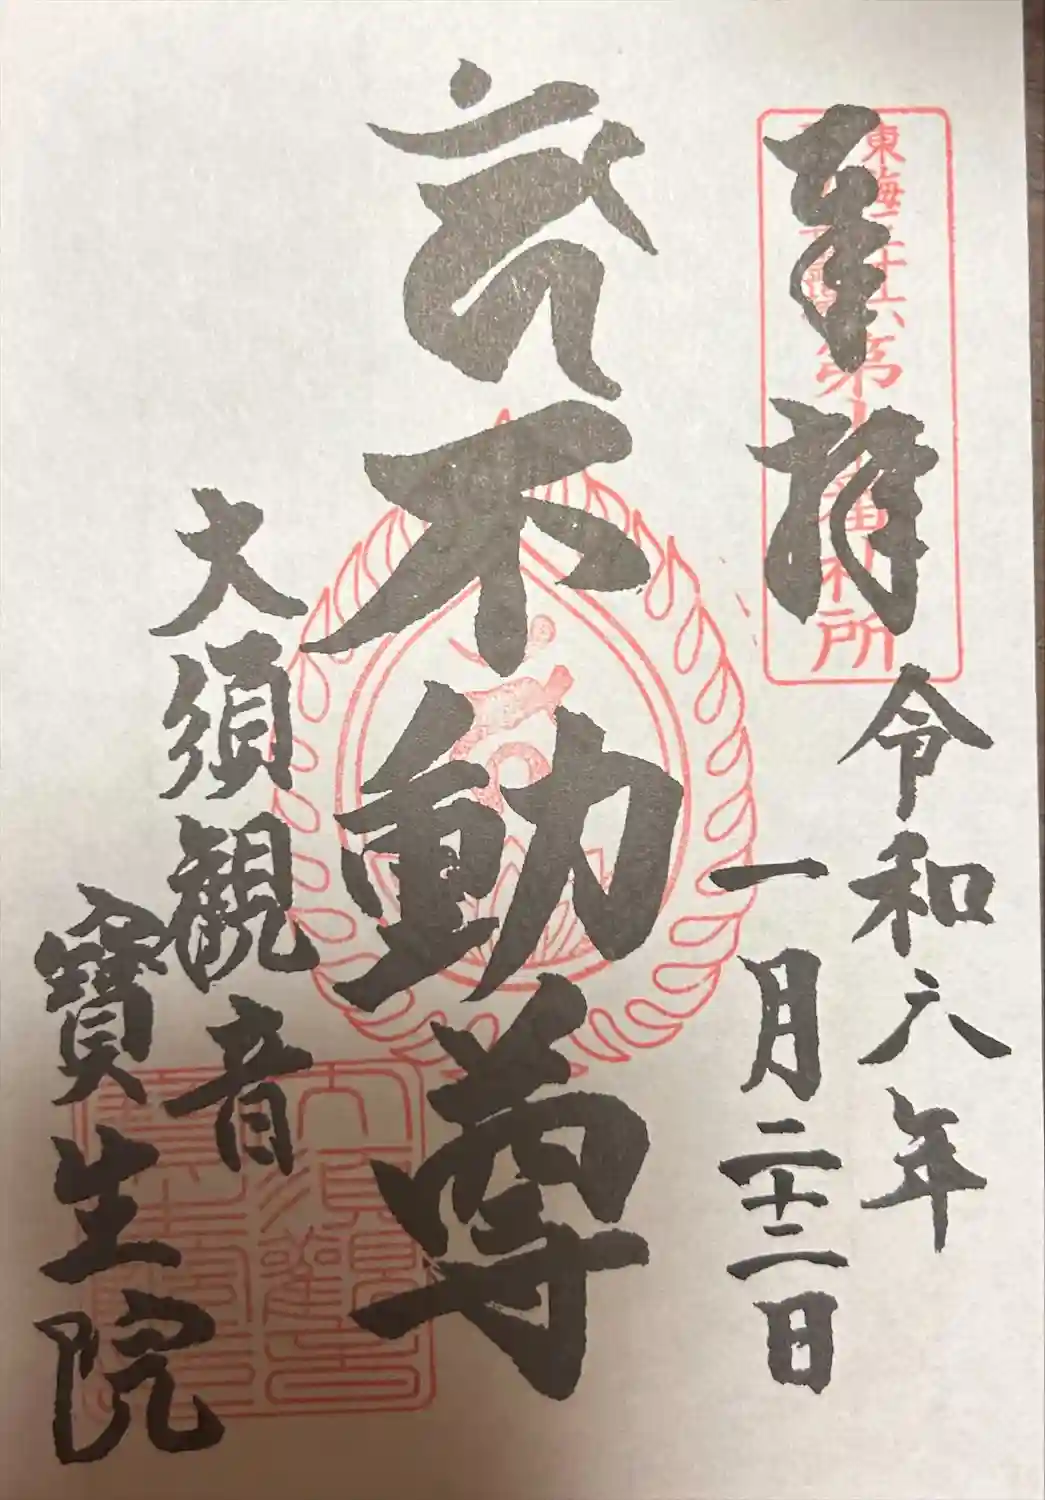 奉拝
令和八年
一月二十二日
不動尊
大須観音
寶生院
東海三十六
不動尊霊場
第十番札所